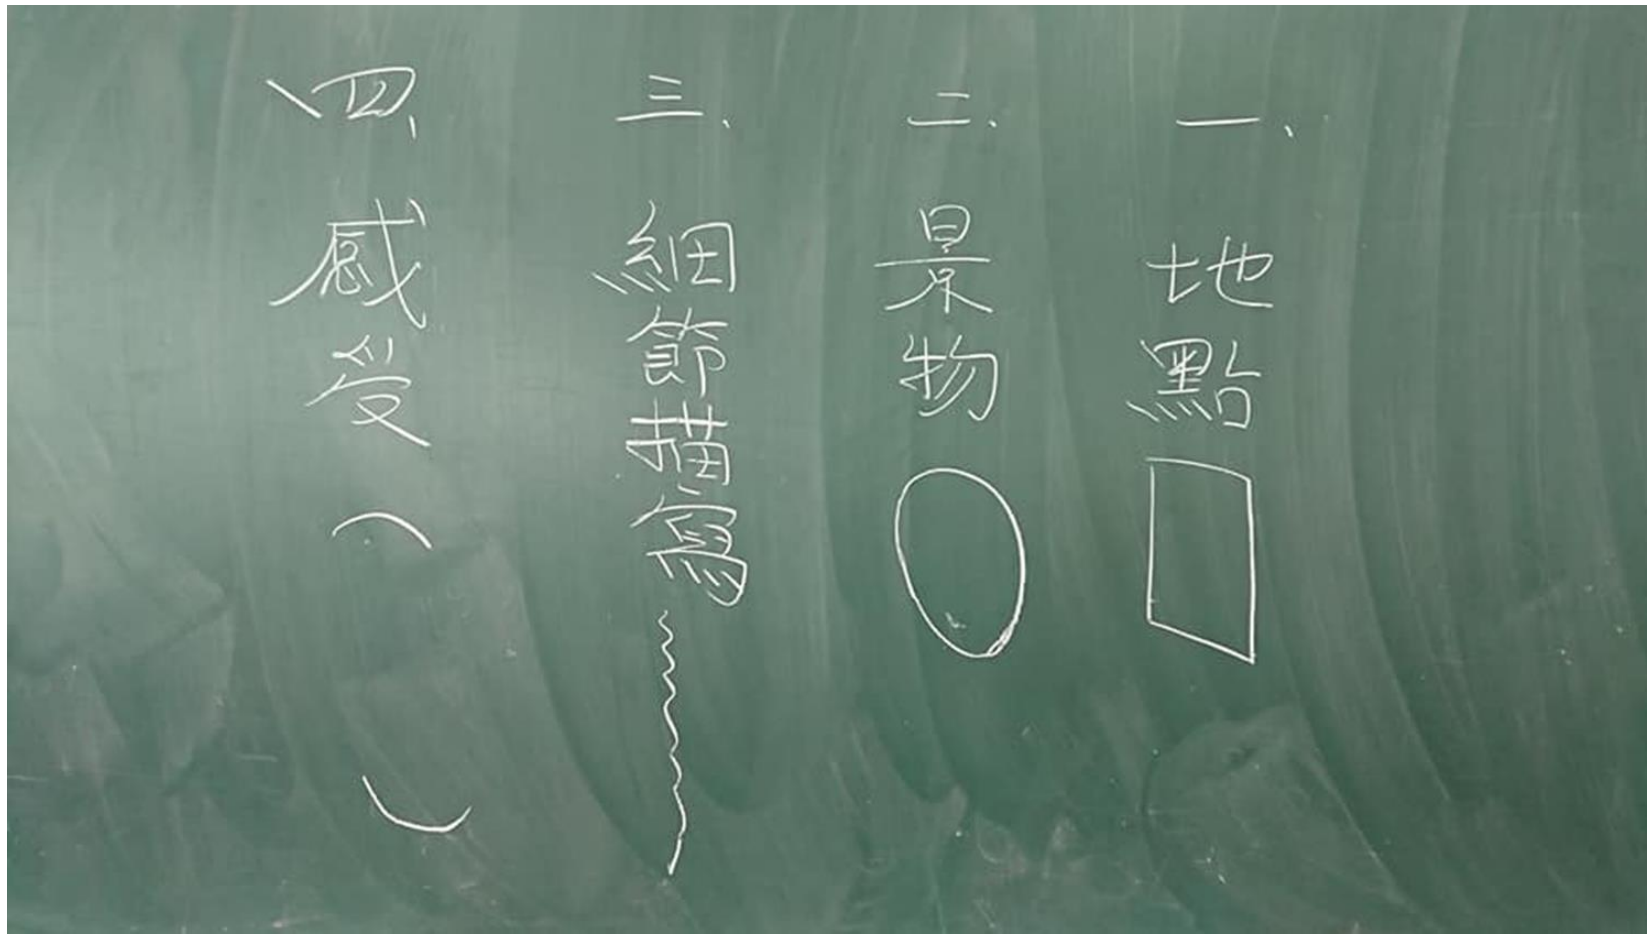 一、地點
二、景物
三、細節描寫
四、感受（　）